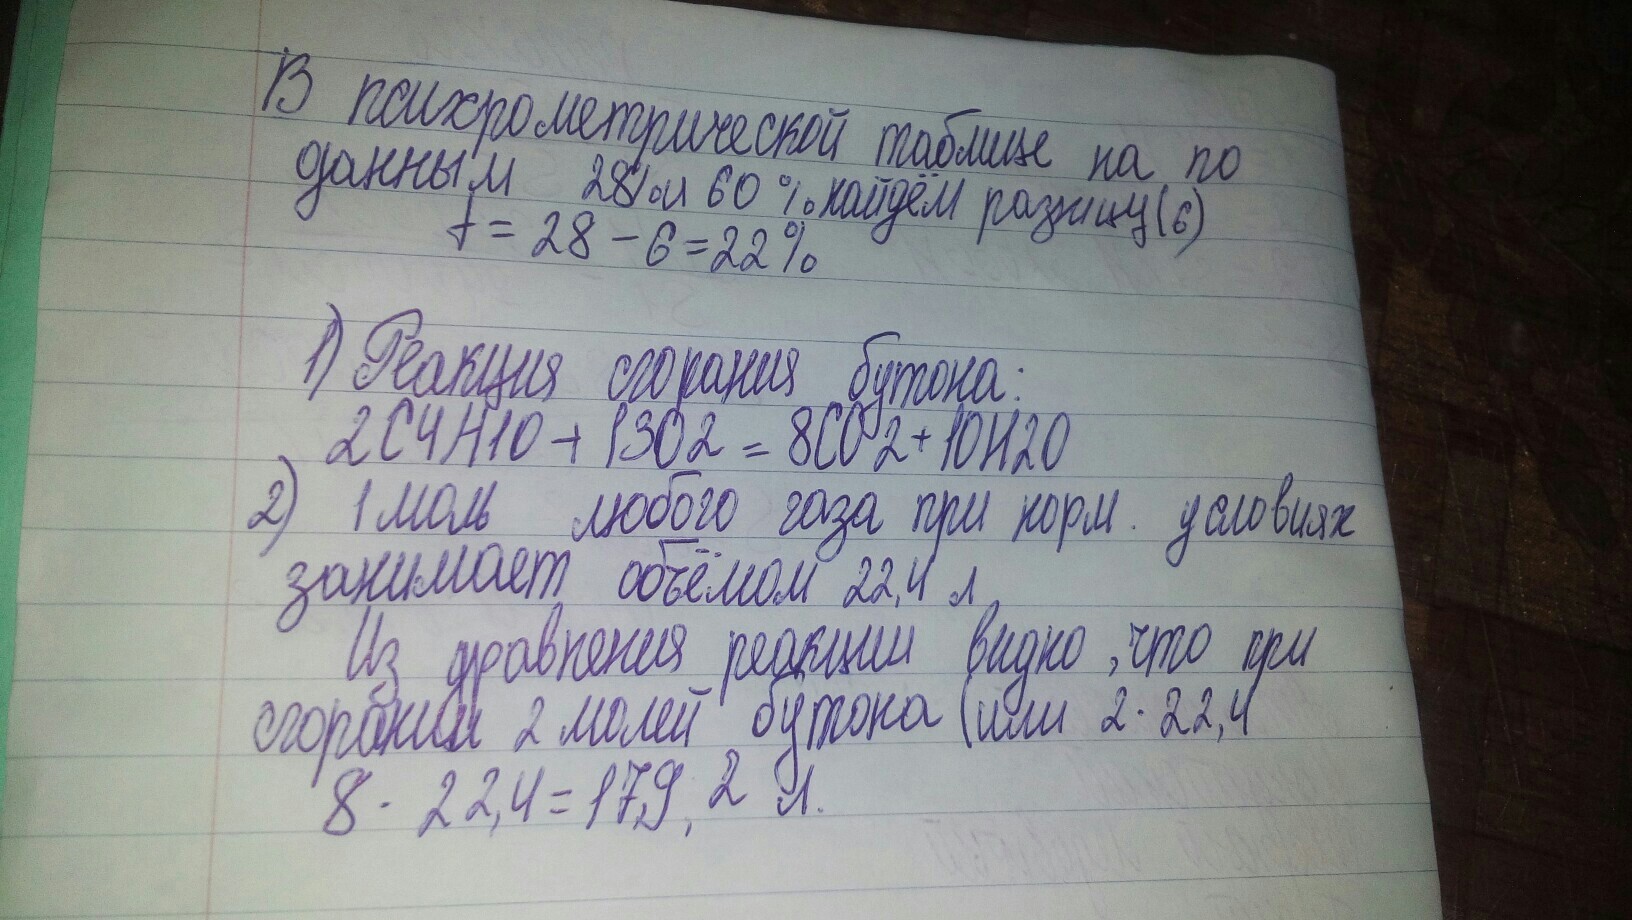 В психрометрической таблице на по
данным 28% и 60% найдём разницу (6)
t = 28 - 6 = 22%
1) Реакция сгорания бутона:
2C4H10 + 13O2 = 8CO2 + 10H2O
2) 1 моль любого газа при норм. условиях
занимает объёмом 22,4 л
Из уравнения реакции видно, что при
сгорании 2 молей бутона (или 2 · 22,4
8 · 22,4 = 179,2 л.